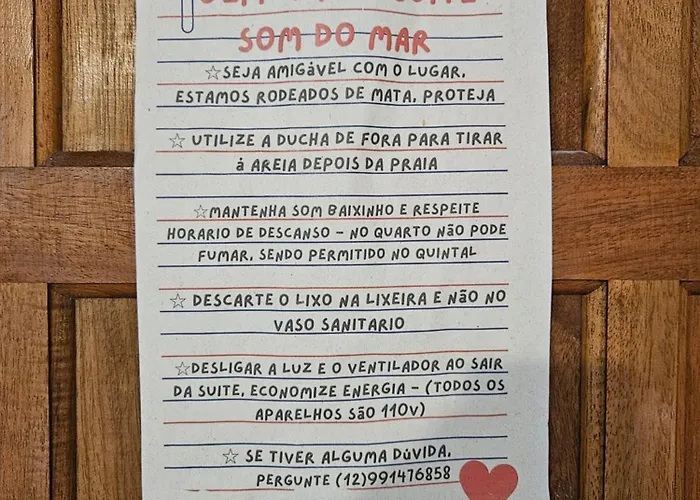 SOM DO MAR
☆SEJA AMIGáVEL COM O LUGAR,
ESTAMOS RODEADOS DE MATA, PROTEJA
☆ UTILIZE A DUCHA DE FORA PARA TIRAR
à AREIA DEPOIS DA PRAIA
☆MANTENHA SOM BAIXINHO E RESPEITE
HORARIO DE DESCANSO - NO QUARTO NãO PODE
FUMAR, SENDO PERMITIDO NO QUINTAL
☆ DESCARTE O LIXO NA LIXEIRA E NãO NO
VASO SANITARIO
☆DESLIGAR A LUZ E O VENTILADOR AO SAIR
DA SUITE, ECONOMIZE ENERGIA - (TODOS OS
APARELHOS SãO 110V)
☆ SE TIVER ALGUMA DúVIDA,
PERGUNTE (12)991476858